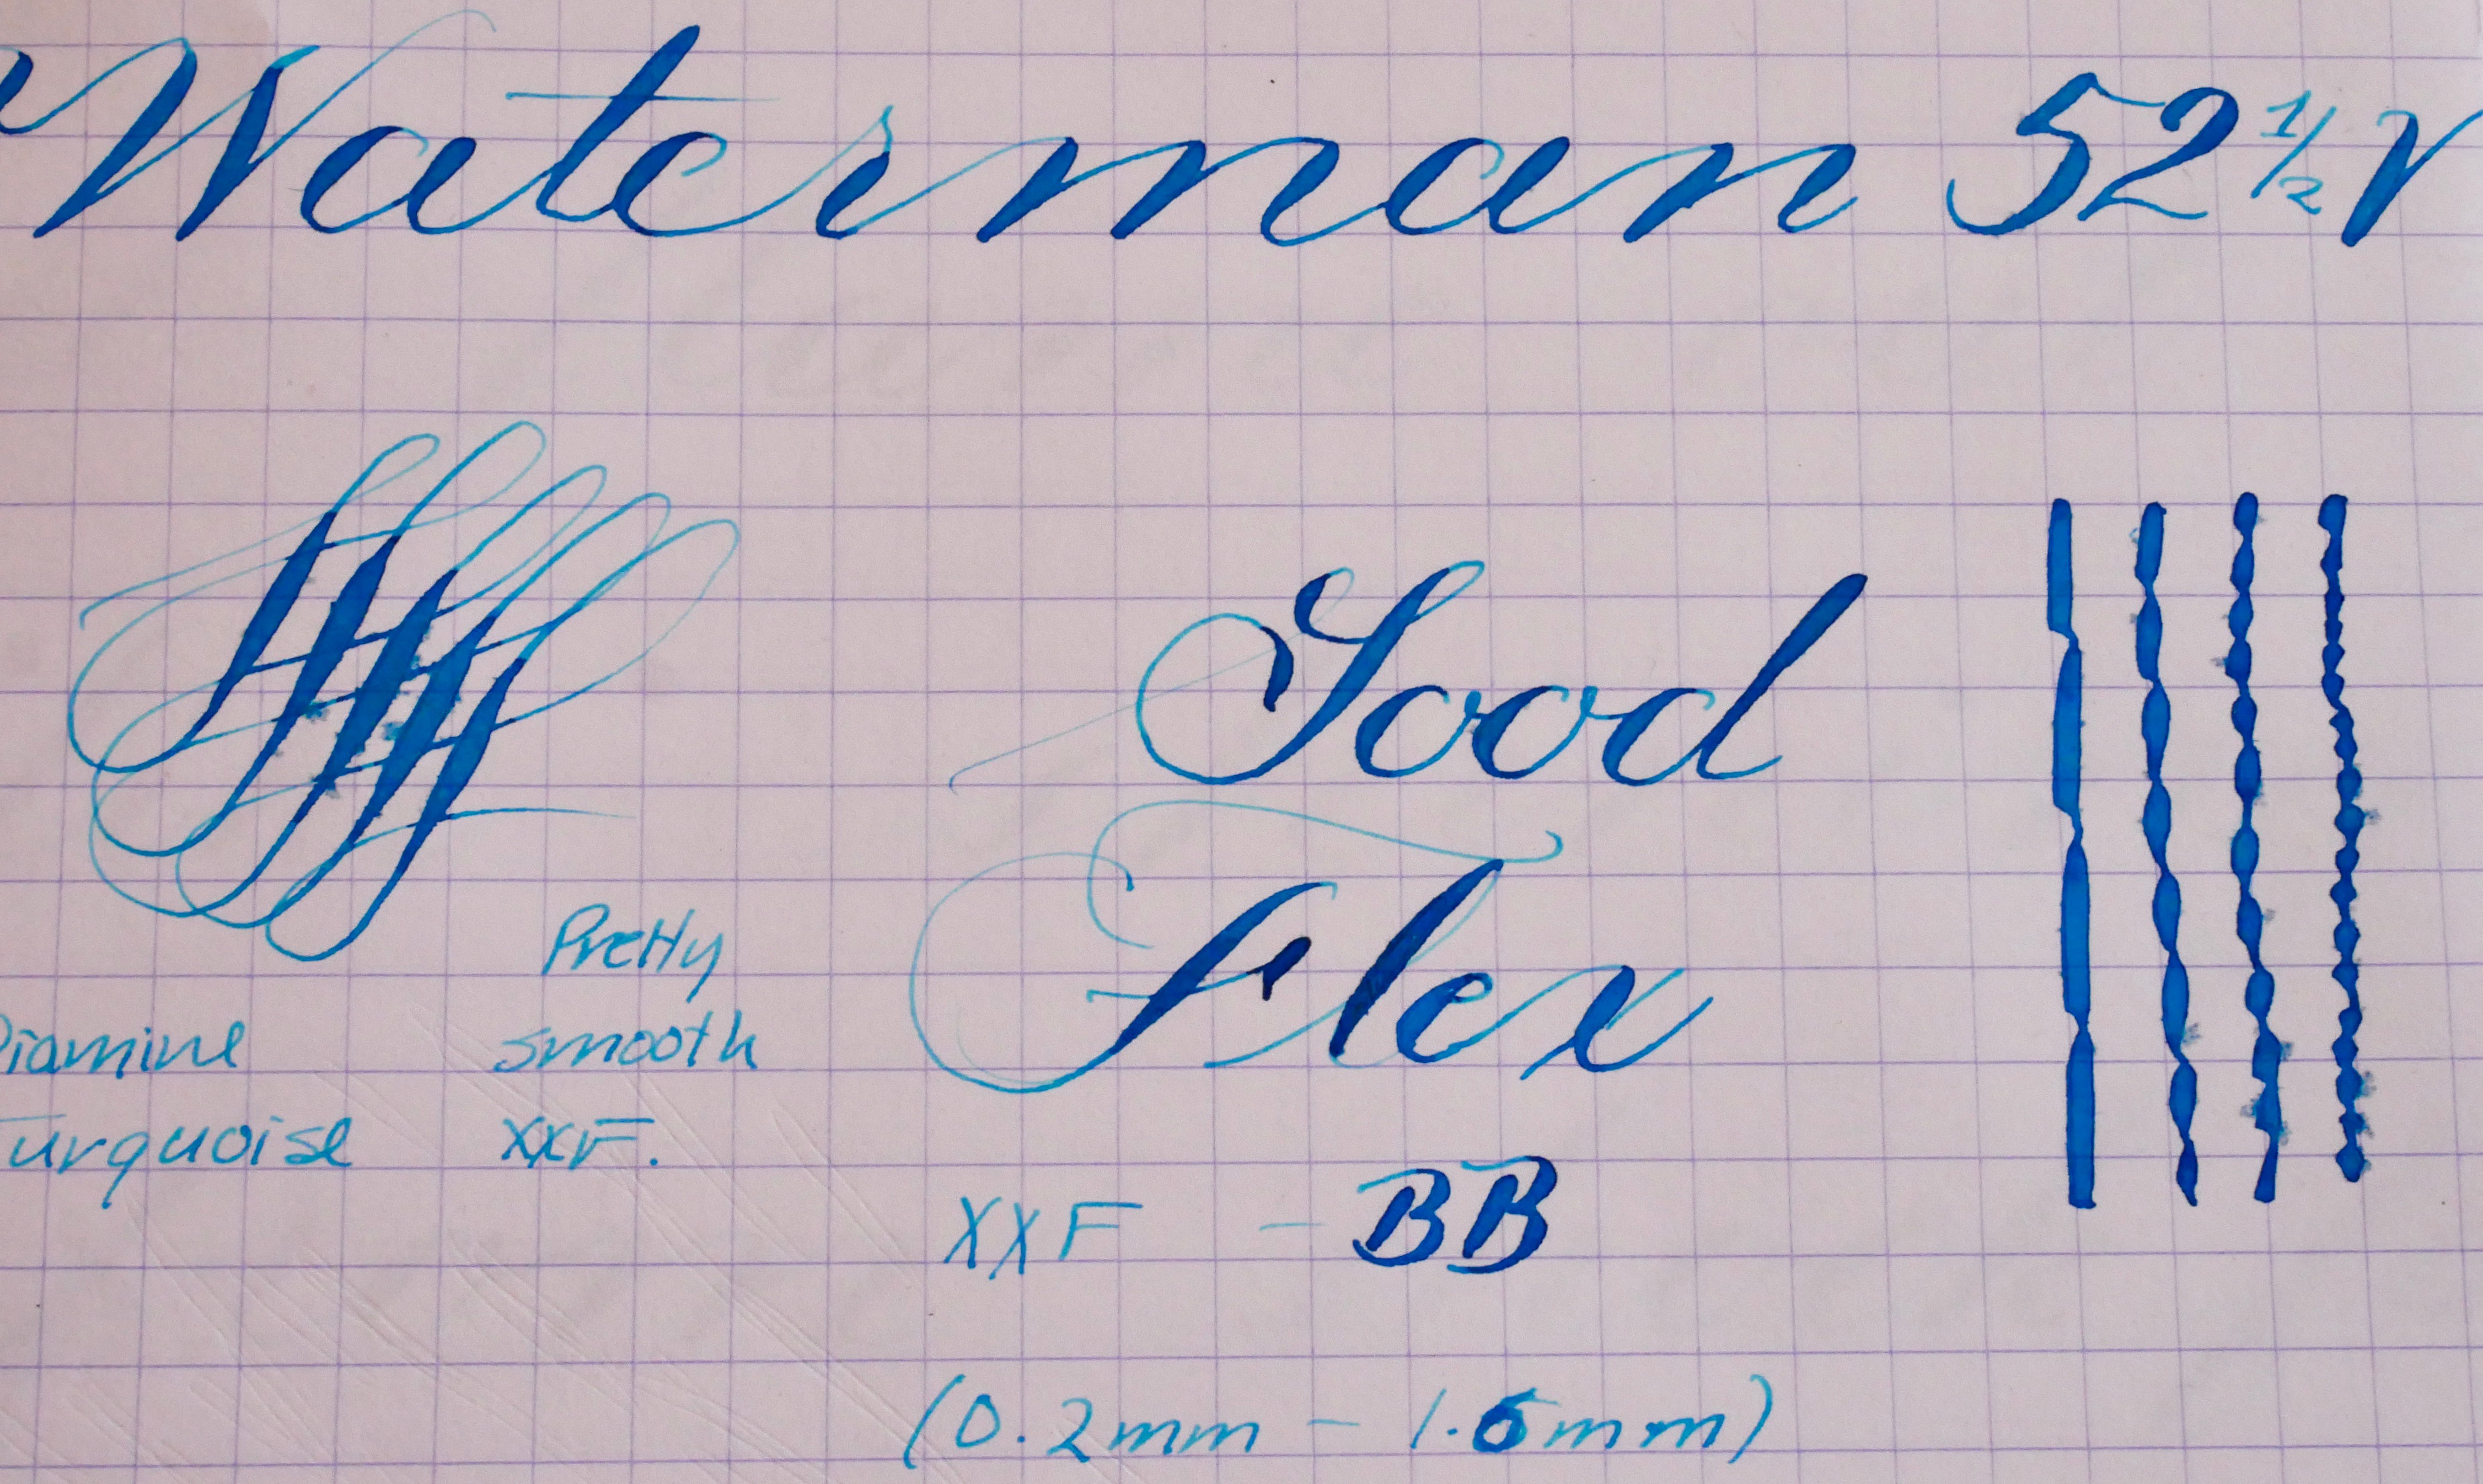 Waterman 52 1/2 V
Good
Flex
Pretty
smooth
XXF.
Diamine
Turquoise
XXF - BB
(0.2mm - 1.6mm)